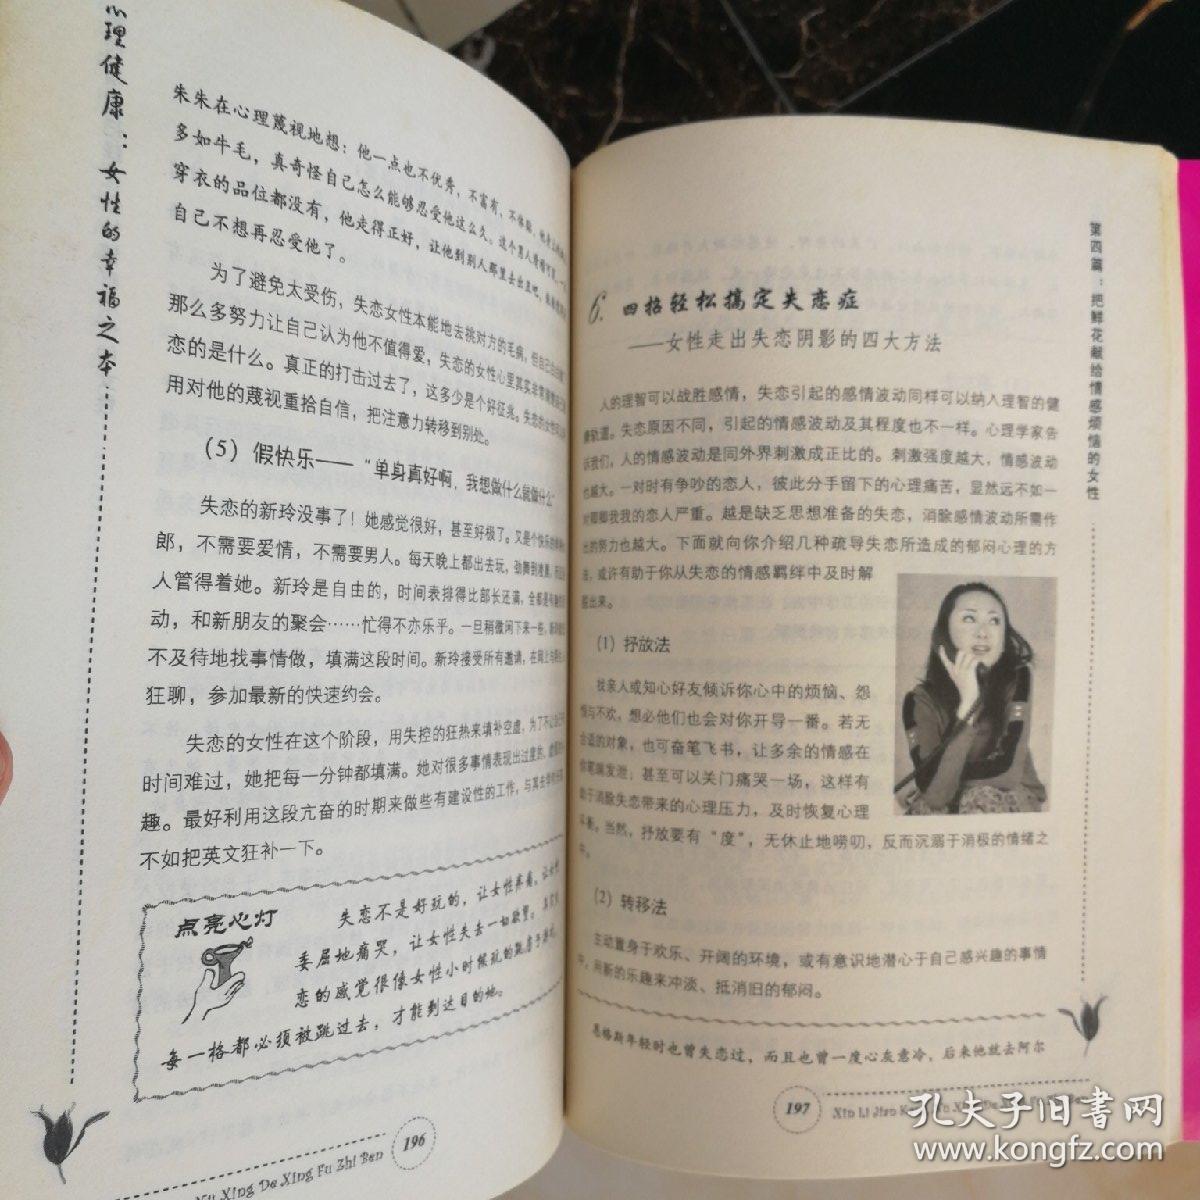 心理健康：女性的幸福之本
朱朱在心理蔑视地想：他一点也不优秀、不富有、不体贴，他
多如牛毛，真奇怪自己怎么能够忍受他这么久。这个男人
穿衣的品位都没有，他走得正好，让他到别人那里去出丑吧，
自己不想再忍受他了。
为了避免太受伤，失恋女性本能地去挑对方的毛病，但自己
那么多努力让自己认为他不值得爱，失恋的女性心里其实非常
恋的是什么。真正的打击过去了，这多少是个好征兆。失恋的女性
用对他的蔑视重拾自信，把注意力转移到别处。
（5）假快乐——“单身真好啊，我想做什么就做什么”
失恋的新玲没事了！她感觉很好，甚至好极了。又是个快乐的
郎，不需要爱情，不需要男人。每天晚上都出去玩，劲舞到
人管得着她。新玲是自由的，时间表排得比部长还满，全都是
动，和新朋友的聚会……忙得不亦乐乎。一旦稍微闲下来一些，
不及待地找事情做，填满这段时间。新玲接受所有邀请，在网上
狂聊，参加最新的快速约会。
失恋的女性在这个阶段，用失控的狂热来填补空虚，为了不让
时间难过，她把每一分钟都填满。她对很多事情表现出过度的
趣。最好利用这段亢奋的时期来做些有建设性的工作，与其去学
不如把英文狂补一下。
点亮心灯
失恋不是好玩的，让女性疼痛，让女性
委屈地痛哭，让女性失去一切欲望。
恋的感觉很像女性小时候玩的跳房子游戏，
每一格都必须被跳过去，才能到达目的地。
196
Xing De Xing Fu Zhi Ben
第四篇：把鲜花献给情感烦恼的女性
6. 四招轻松搞定失恋症
——女性走出失恋阴影的四大方法
人的理智可以战胜感情，失恋引起的感情波动同样可以纳入理智的健
康轨道。失恋原因不同，引起的情感波动及其程度也不一样。心理学家告
诉我们，人的情感波动是同外界刺激成正比的。刺激强度越大，情感波动
也越大。一对时有争吵的恋人，彼此分手留下的心理痛苦，显然远不如一
对卿卿我我的恋人严重。越是缺乏思想准备的失恋，消除感情波动所需作
出的努力也越大。下面就向你介绍几种疏导失恋所造成的郁闷心理的方
法，或许有助于你从失恋的情感羁绊中及时解
脱出来。
（1）抒放法
找亲人或知心好友倾诉你心中的烦恼、怨
恨与不欢，想必他们也会对你开导一番。若无
合适的对象，也可奋笔飞书，让多余的情感在
你笔端发泄；甚至可以关门痛哭一场，这样有
助于消除失恋带来的心理压力，及时恢复心理
平衡。当然，抒放要有“度”，无休止地唠叨，反而沉溺于消极的情绪之
中。
（2）转移法
主动置身于欢乐、开阔的环境，或有意识地潜心于自己感兴趣的事情
中，用新的乐趣来冲淡、抵消旧的郁闷。
恩格斯年轻时也曾失恋过，而且也曾一度心灰意冷，后来他就去阿尔
197
Xin Li Jian
孔夫子旧书网
www.kongfz.com